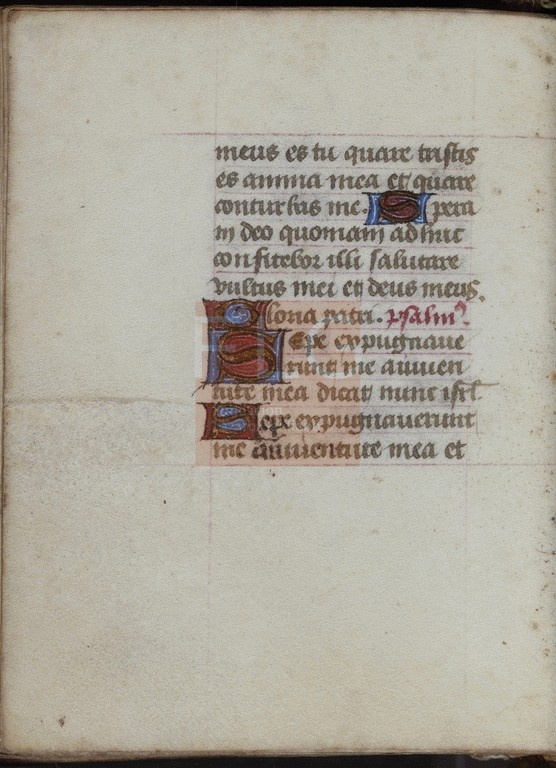 meus es tu quare tristis
es anima mea et quare
conturbas me. Spera
in deo quoniam adhuc
confitebor illi salutare
vultus mei et deus meus.
Gloria patri. psalm9.
Sepe expugnaue
runt me a iuuen
tute mea dicat nunc isrl
Sepe expugnauerunt
me a iuuentute mea et